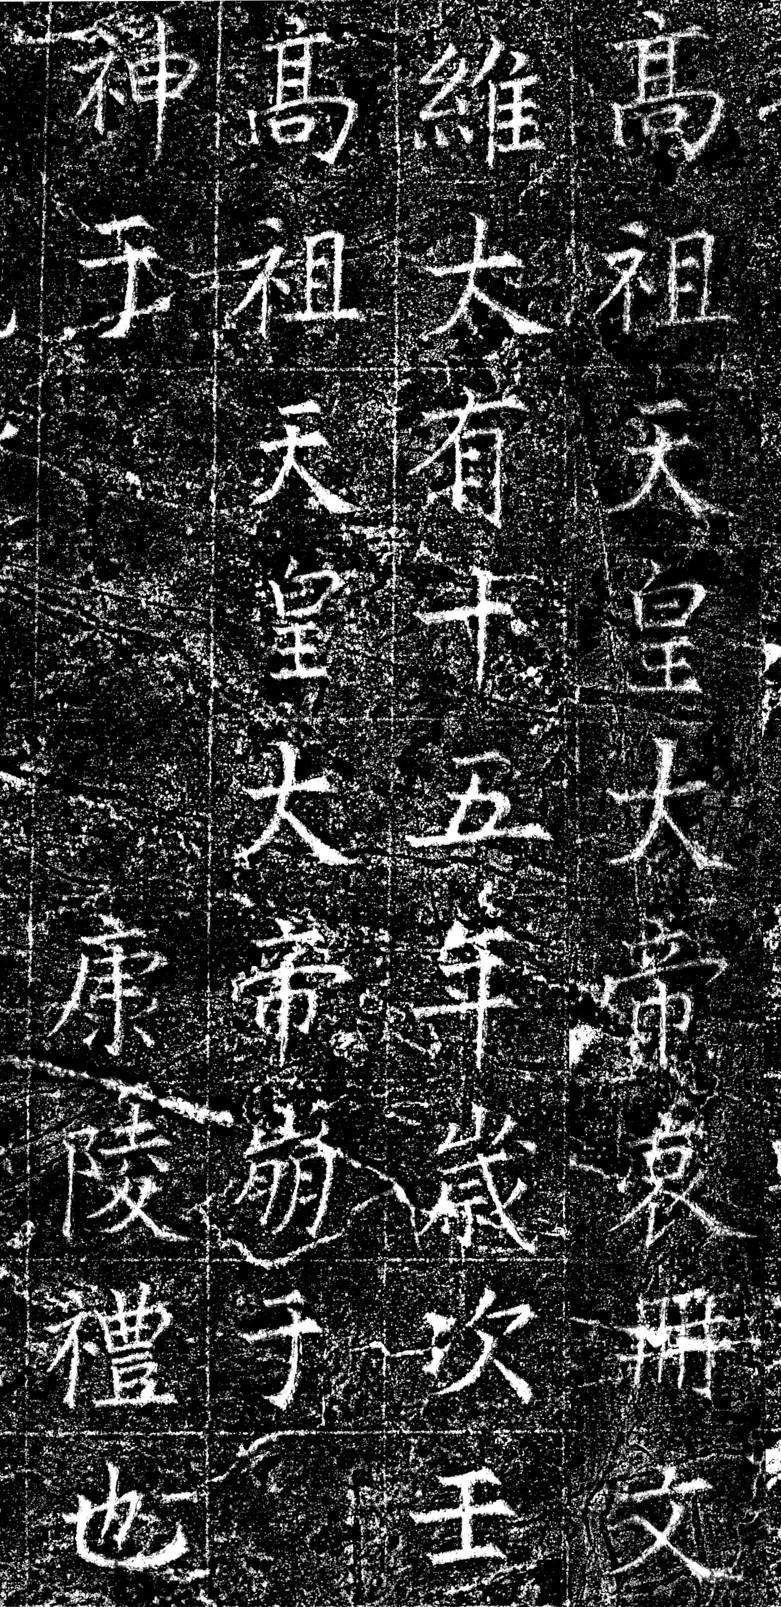 高祖天皇大帝哀冊文
維太有十五年歳次壬
高祖天皇大帝崩于
神于康陵禮也